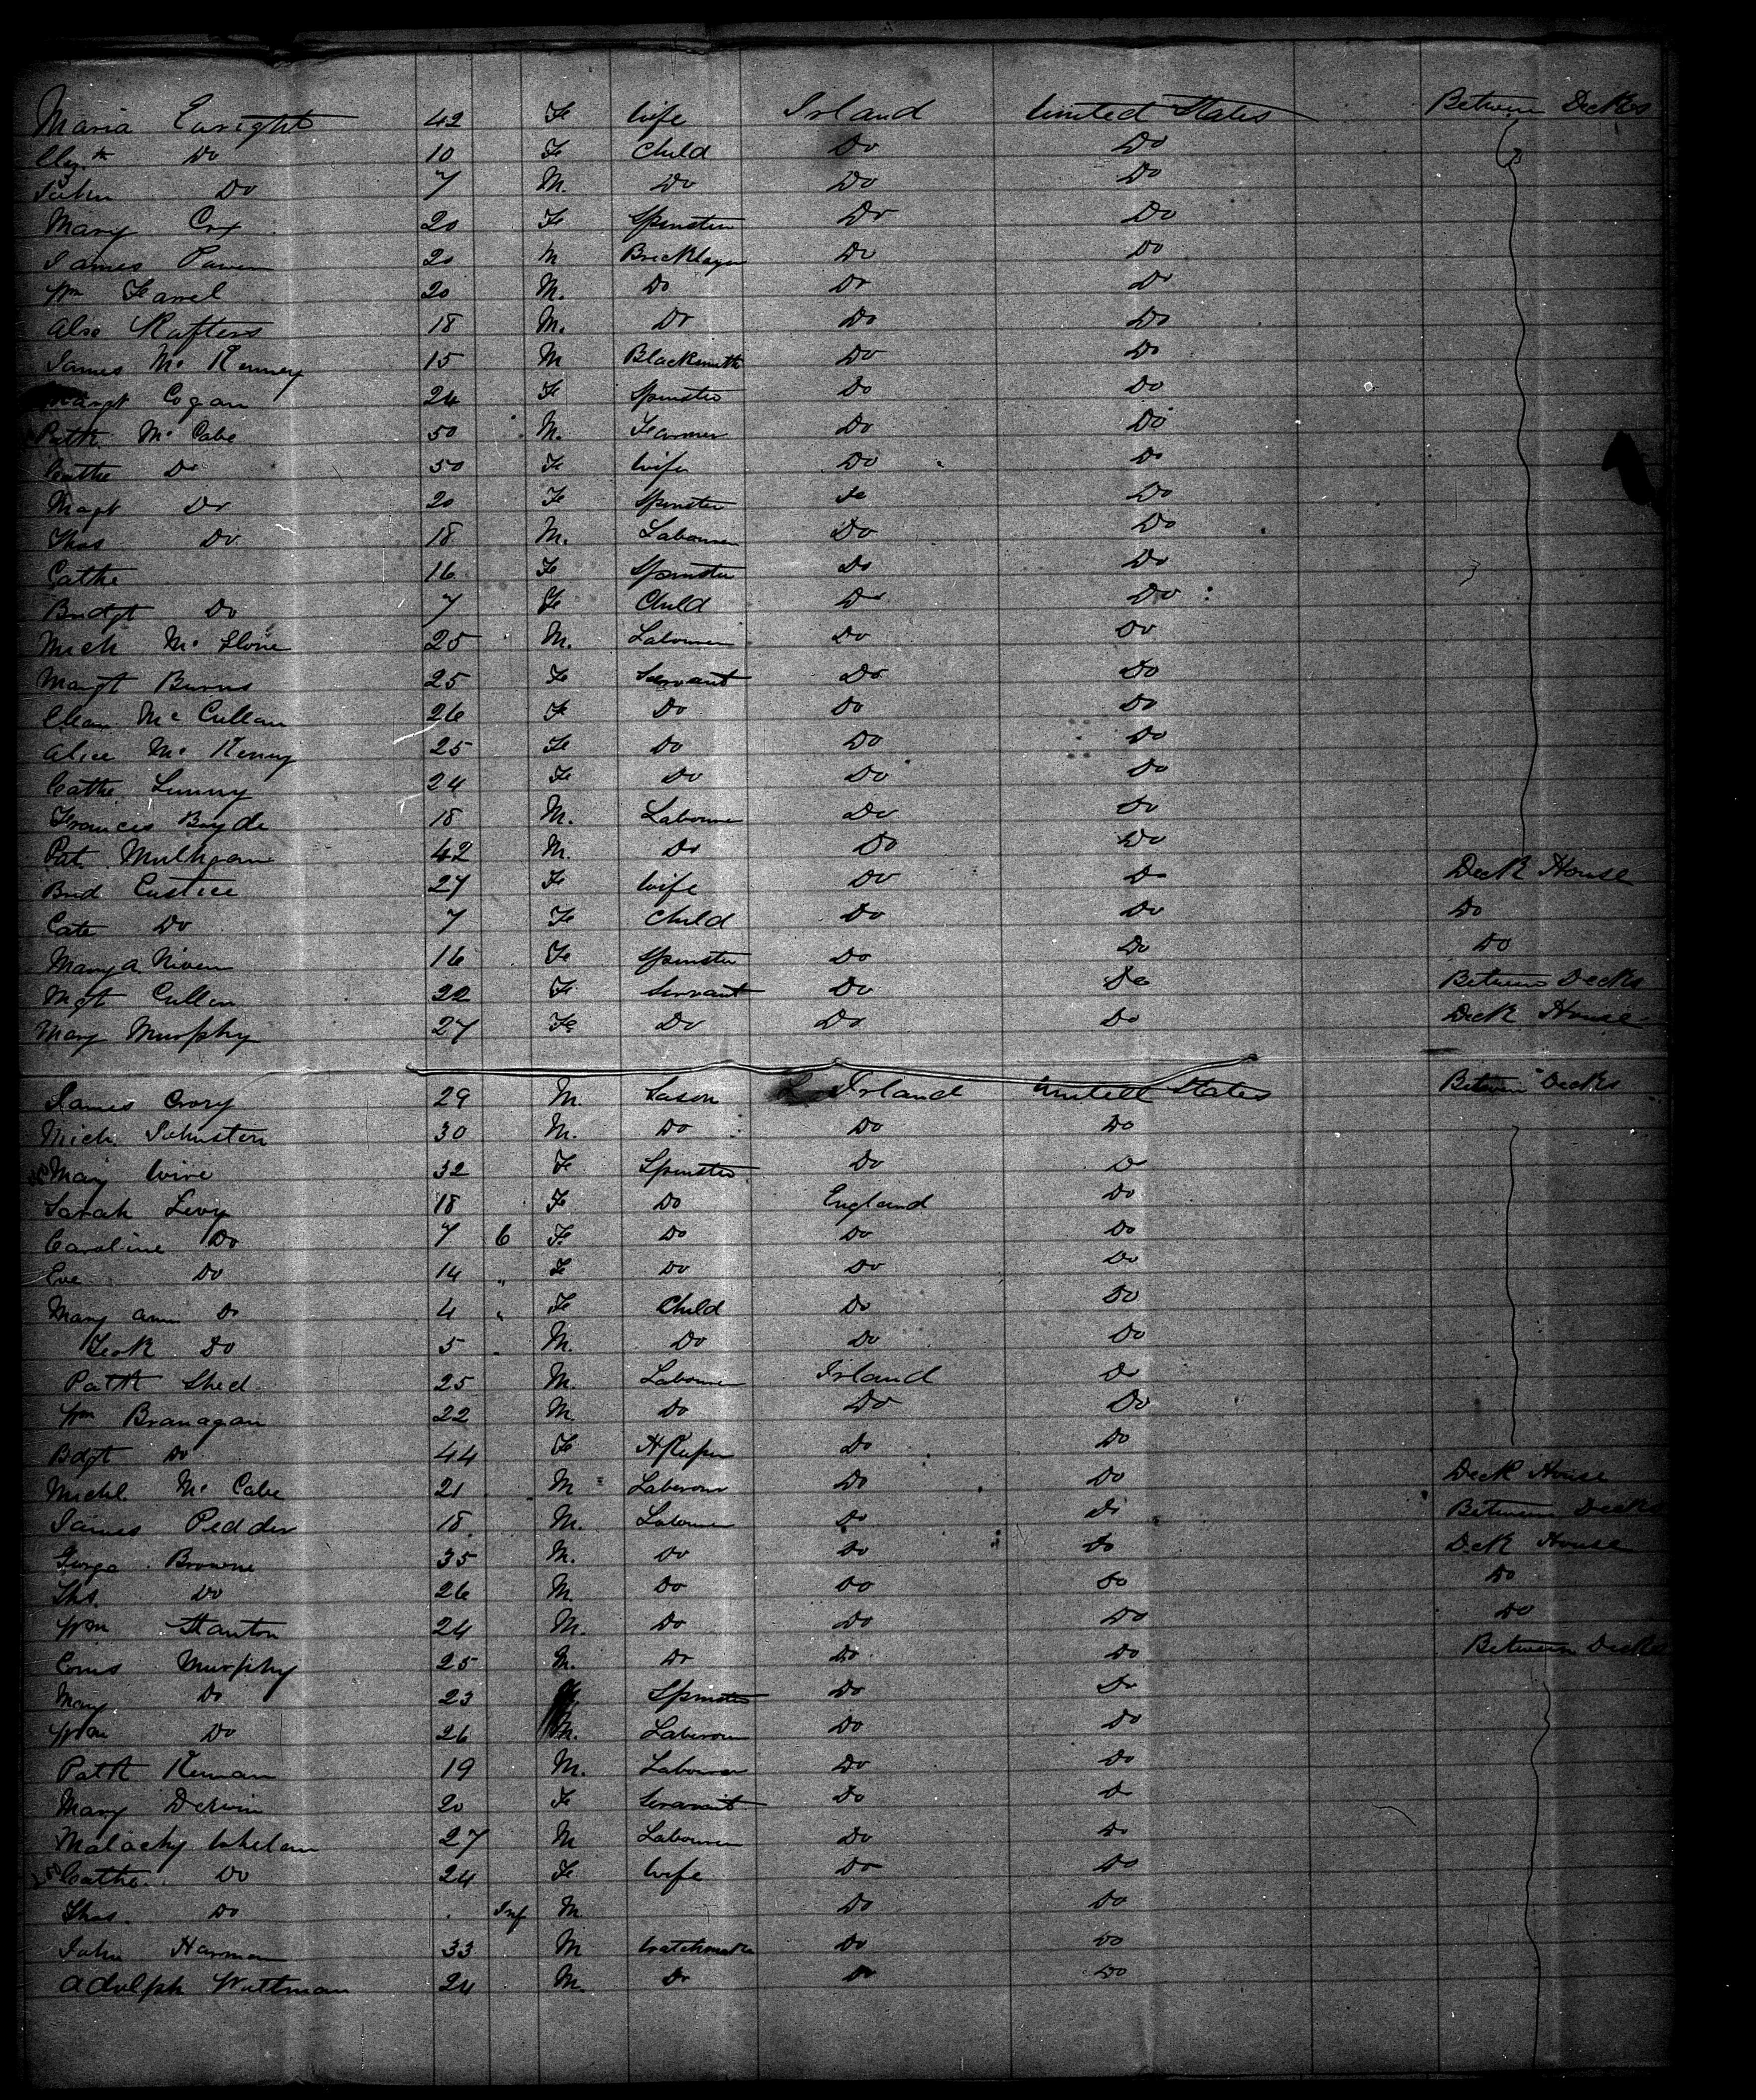 Maria Enright 42 Fe Wife Irland United States Between Decks
Elizth Do 10 Fe Child Do Do
John Do 7 M. Do Do Do
Mary Cox 20 Fe Spinster Do Do
James 20 M Bricklayer Do Do
Wm Farrel 20 M. Do Do Do
Rafters 18 M. Do Do Do
James Mc Kenney 15 M Blacksmith Do Do
Margt Cogan 24 Fe Spinster Do Do
Patk Mc Cabe 50 M. Farmer Do Do
Cathe Do 50 Fe Wife Do Do
Magt Do 20 Fe Spinster Do
Thos Do 18 M. Labourer Do Do
Cathe 16 Fe Spinster Do Do
Bridgt Do 7 Fe Child Do Do
Mich Mc 25 M. Labourer Do Do
Margt Burns 25 Fe Servant Do Do
Mc Cullan 26 Fe Do Do Do
Alice Mc Kenny 25 Fe Do Do Do
Cathe Lunny 24 Fe Do Do Do
Frances Boyde 18 M. Labourer Do Do
Pat Mulligan 42 M. Do Do Do
Brid Custice 27 Fe Wife Do Do Deck House
Cate Do 7 Fe Child Do Do Do
Mary A Niven 16 Fe Spinster Do Do Do
Mgt Cullen 22 Fe Servant Do Do Between Decks
Mary Murphy 27 Fe Do Do Do Deck House
James Crory 29 M. Irland United States Between Decks
Mich Johnston 30 M. Do Do Do
Mary 32 Fe Spinster Do Do
Sarah Levy 18 Fe Do England Do
Caroline Do 7 6 Fe Do Do Do
Eve Do 14 " Fe Do Do Do
Mary ann Do 4 " Fe Child Do Do
Do 5 M. Do Do Do
Patk Shed 25 M. Labourer Irland Do
Wm Branagan 22 M Do Do Do
Bdgt Do 44 Fe HKeper Do Do
Michl Mc Cabe 21 M Laberour Do Do Deck House
James Pedder 18 M. Labourer Do Do Between Decks
George Browne 35 M. Do Do Do Deck House
Ths. Do 26 M Do Do Do Do
Wm Stanton 24 M. Do Do Do Do
Corns Murphy 25 M. Do Do Do Between Decks
Mary Do 23 Spinster Do Do
Wm Do 26 M. Laberour Do Do
Patk Kernan 19 M. Labourer Do Do
Mary Derwin 20 Fe Servant Do Do
Malachy Whelan 27 M Labourer Do Do
Cathe. Do 24 Fe Wife Do Do
Thos. Do Inf M. Do Do
John Harman 33 M Watchmaker Do Do
Adolph Wuttman 24 M. Do Do Do